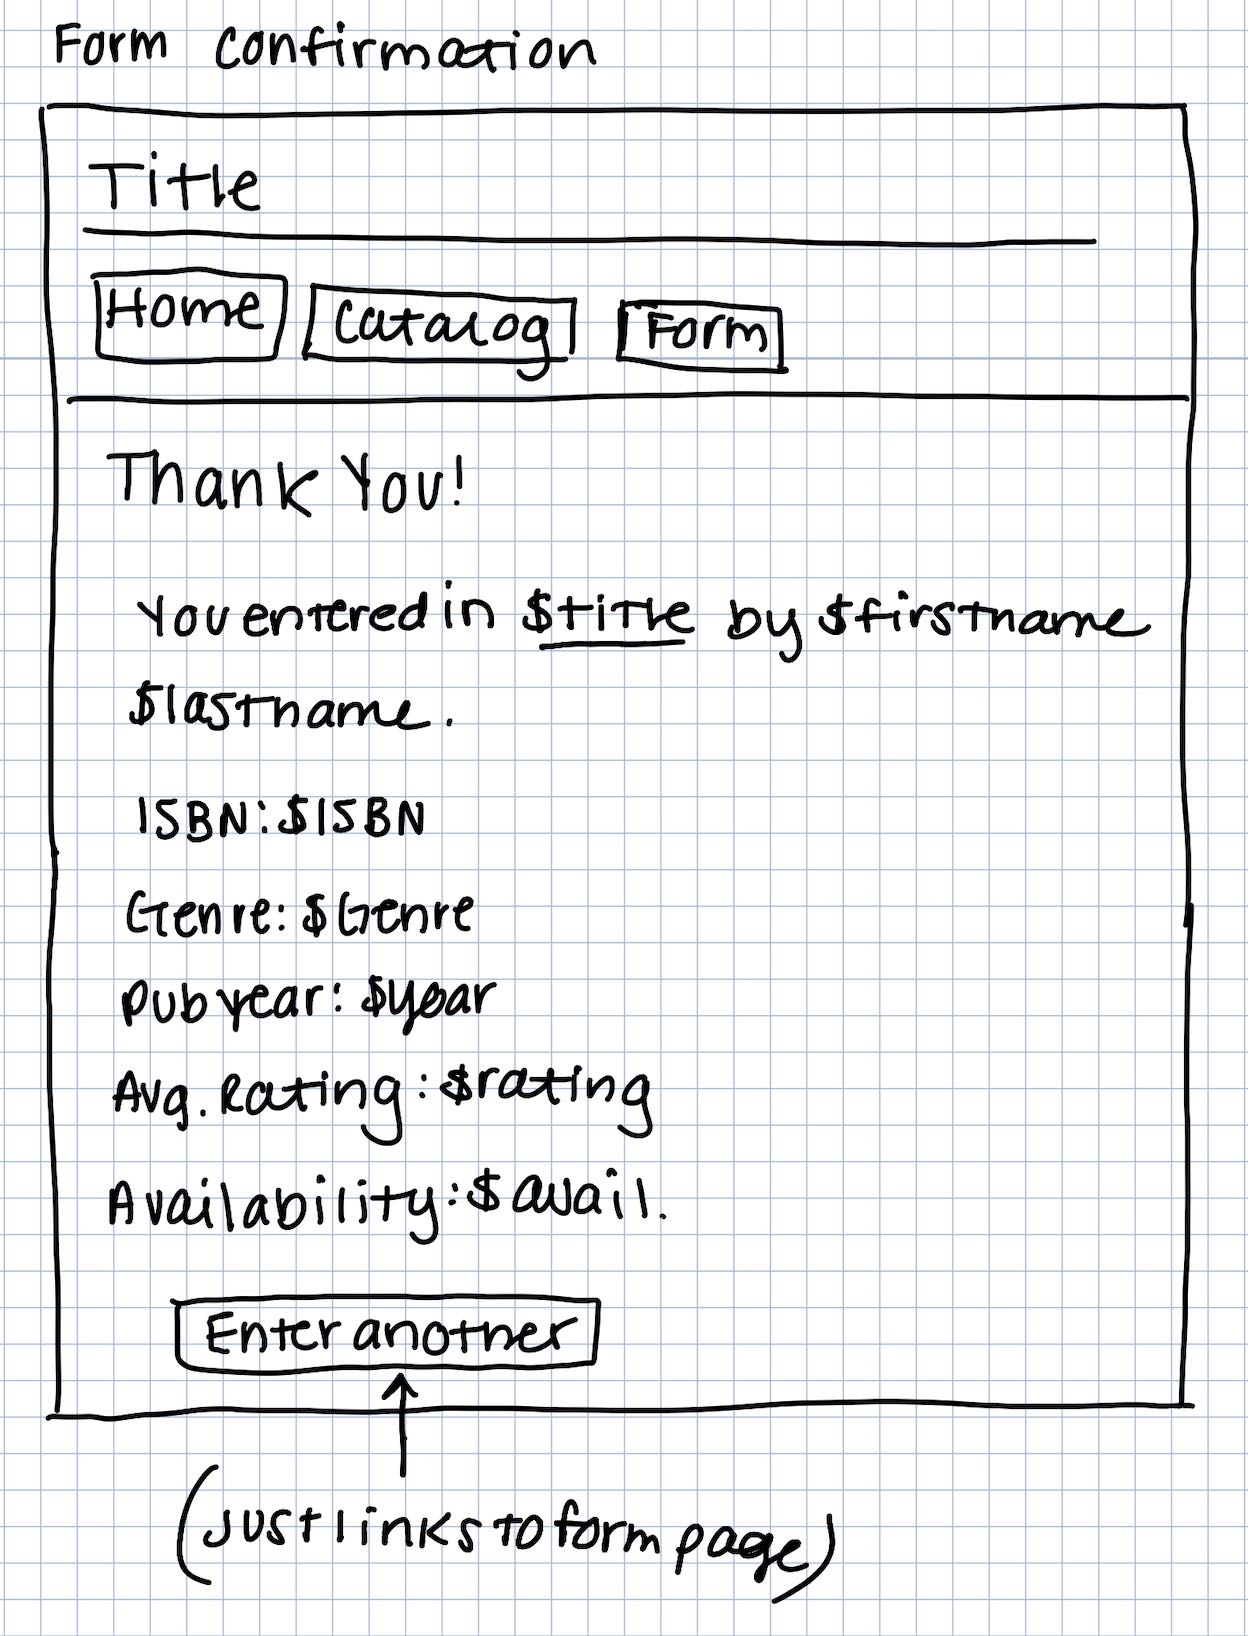 Form Confirmation
Title
Home Catalog Form
Thank You!
You entered in $title by $firstname
$lastname.
ISBN: $ISBN
Genre: $Genre
Pub year: $year
Avg. Rating: $rating
Availability: $avail.
Enter another
(just links to form page)